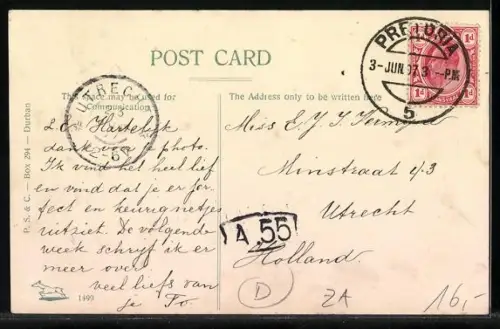 POST CARD
This space may be used for
Communication
The Address only to be written here
P. S. & C. — Box 294 — Durban
L. C. Hartelijk
dank voor je photo.
Ik vind het heel lief
en vind dat je er for-
fect en keurig netjes
uitziet. De volgende
week schrijf ik er
meer over
veel liefs van
je To.
1899
UTRECHT
2-6
Miss E. J. I.
Minstraat
Utrecht
Holland.
PRETORIA
3-JUN.07.3 -P.M
5
1d 1d
A.55
D
ZA
16,-